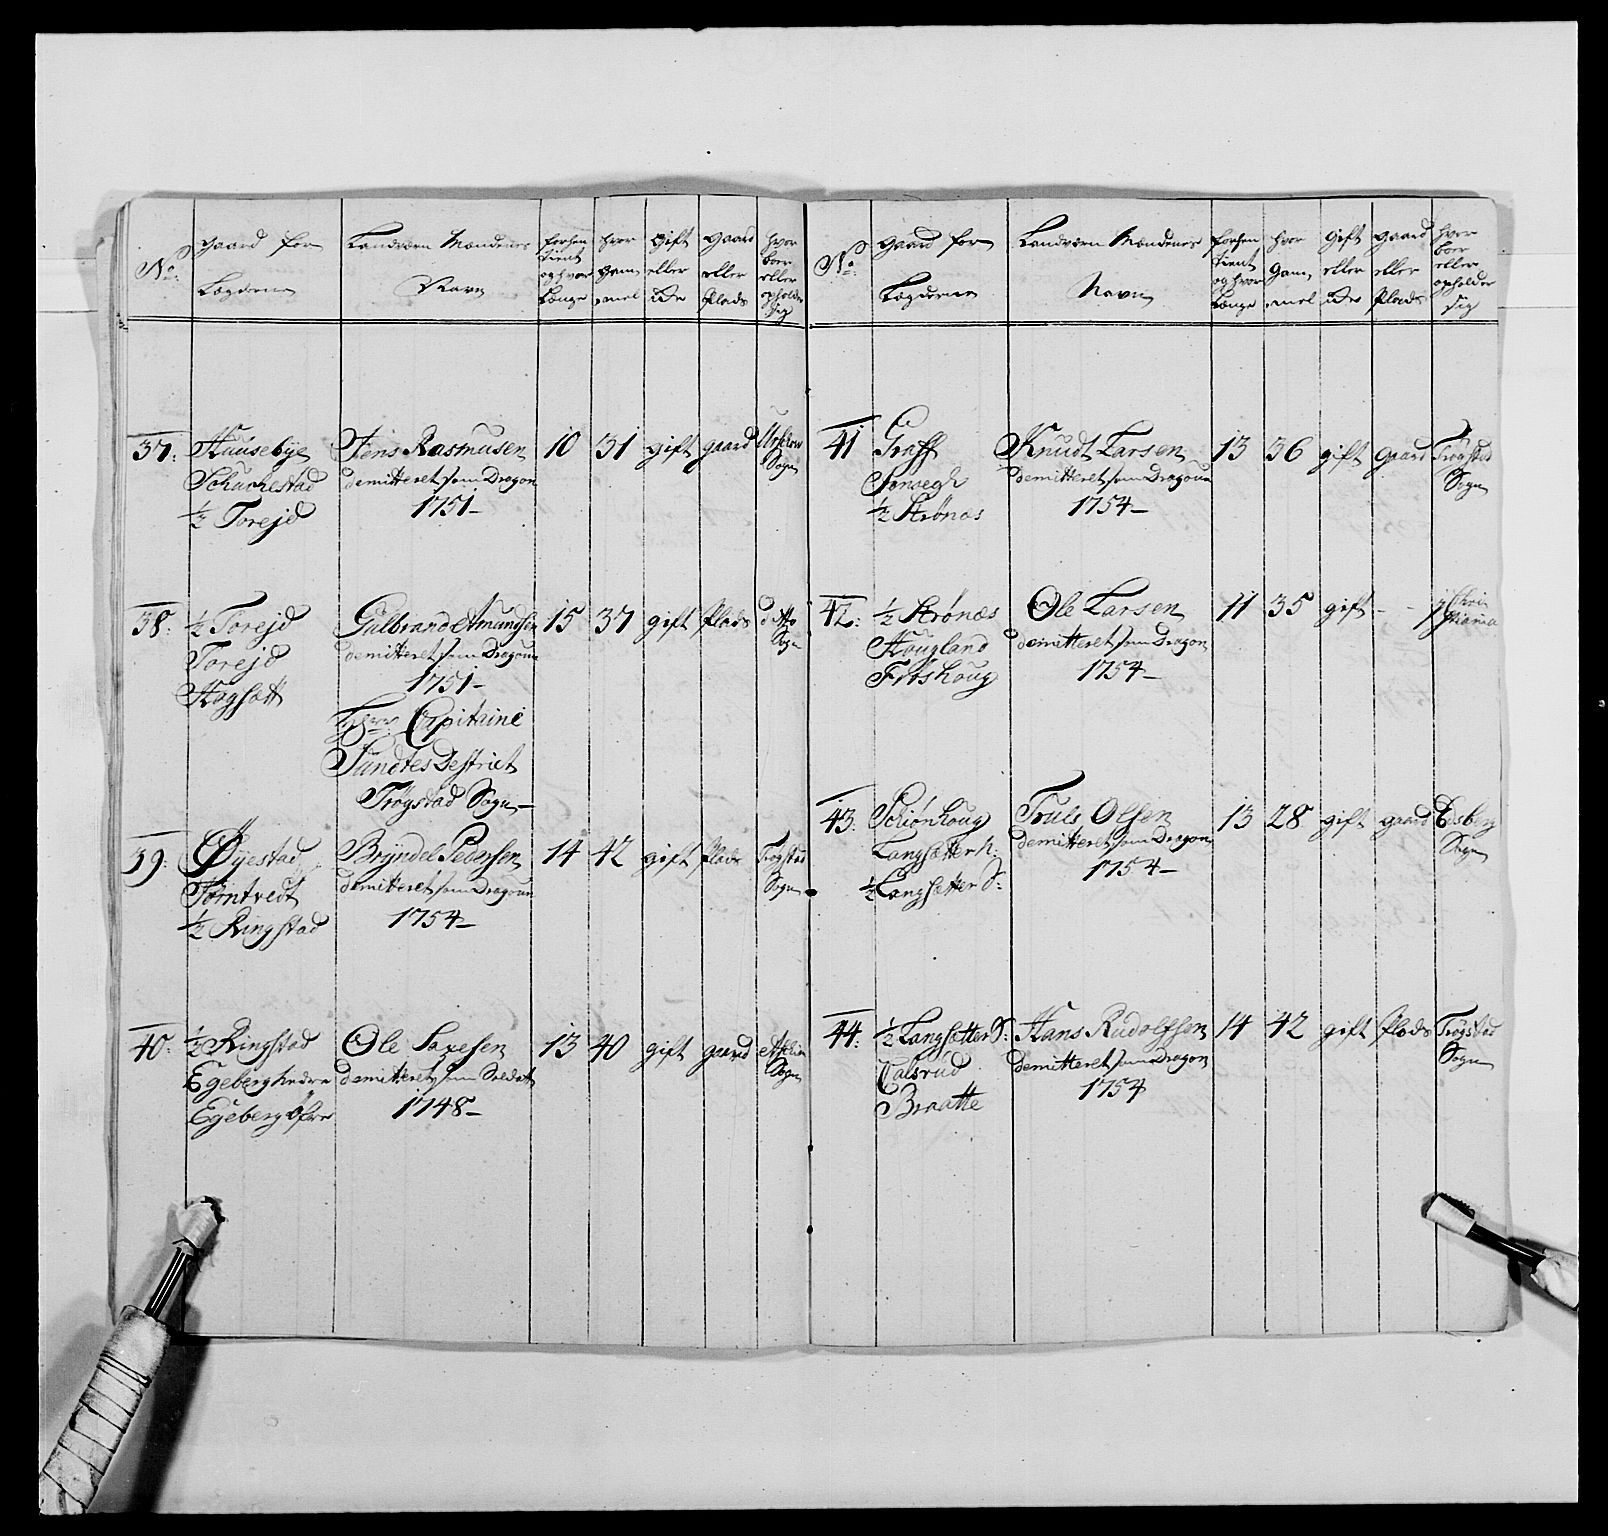 No:
gaard for
Lægderne
Landværn Mændenes
Navn
forhen
tient
og hvor
Længe
hvor
gam,,
,,mel
gift
eller
Ei
gaard
eller
Plads
hvor
boer
eller
opholder
sig
37:
Hausebye
Schuckestad
½ Torejd
Jens Rasmusen
demitteret som Dragon
1751-
10
31
gift
gaard
Sogn
38:
½ Torejd
Torejd
Hagsætt
Gulbrand Amundsen
demitteret som Dragoun
1751-
15
37
gift
Plads
ditto
Sogn
Herr Capitaine
Sundtes Destrict
Trøgstad Sogn-
39:
Øyestad
Torntvedt
½ Ringstad
Bryndel Pedersen
demitteret som Dragoun
1754-
14
42
gift
Plads
Trøgstad
Sogn
40:
½ Ringstad
Egeberg Nedre
Egeberg Øfre
Ole Saxesen
demitteret som Soldat
1748-
13
40
gift
gaard
Sogn
No:
gaard for
Lægderne
Landværn Mændenes
Navn
forhen
tient
og hvor
Længe
hvor
Gam,,
,,mel
gift
eller
Ei
gaard
eller
Plads
hvor
boer
eller
opholder
sig
41
Graff
Sonsegh
½ Strønæs
Knudt Larsen
demitteret som Dragoun
1754-
13
36
gift
gaard
Trøgstad
Sogn
42:
½ Strønæs
Hougland
Frøshoug
Ole Larsen
demitteret som Dragon
1754-
11
35
gift
- -
i Chri
stiania
43:
Schiønhoug
Langsætter N:
½ Langsætter S:
Truls Olsen
demitteret som Dragon
1754-
13
28
gift
gaard
Edsberg
Sogn
44:
½ Langsætter S:
Calsrud
Braatte
Hans Rudolfsen
demitteret som Dragon
1754
14
42
gift
Plads
Trøgstad
Sogn